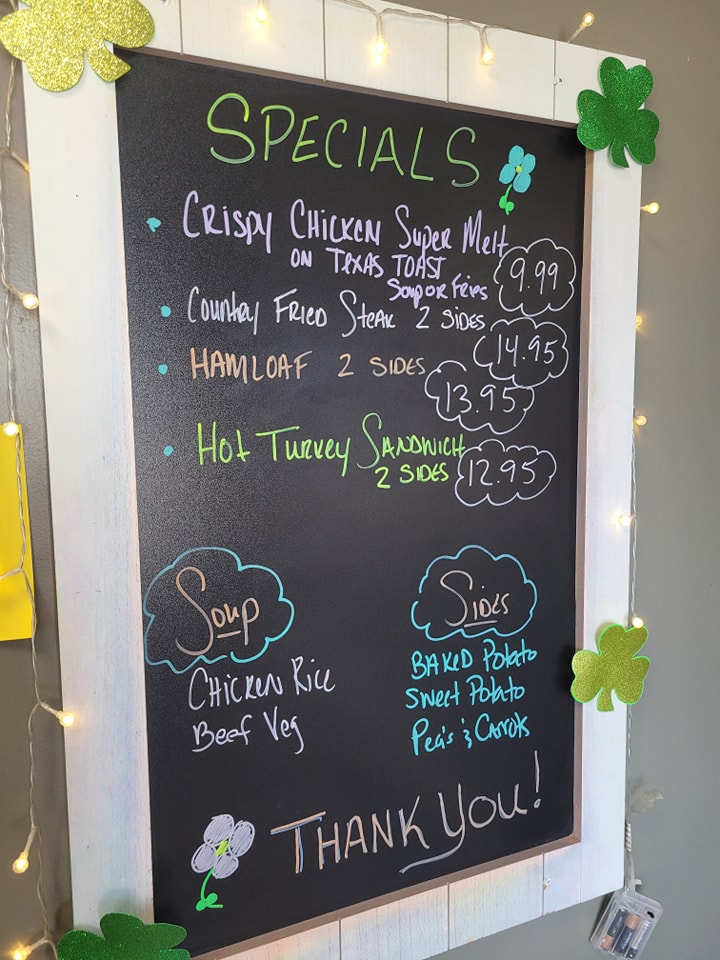 SPECIALS
CRISPY CHICKEN SUPER MELT
ON TEXAS TOAST
SOUP OR FRIES
9.99
COUNTRY FRIED STEAK 2 SIDES
14.95
HAMLOAF 2 SIDES
13.95
Hot Turkey SANDWICH
2 SIDES
12.95
Soup
CHICKEN RICE
Beef Veg
SIDES
BAKED Potato
Sweet Potato
Pea's & CARROts
THANK YOU!